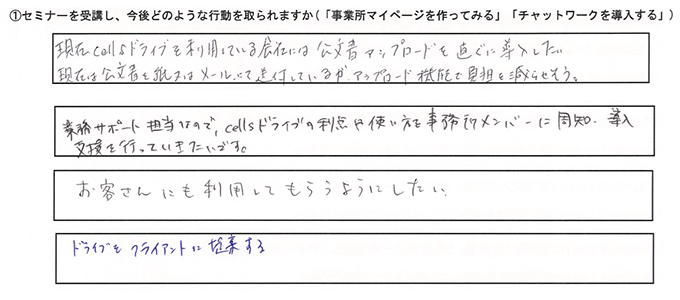 ①セミナーを受講し、今後どのような行動を取られますか(「事業所マイページを作ってみる」「チャットワークを導入する」)
現在cellsドライブを利用している会社には公文書アップロードを直ぐに導入したい
現在は公文書を紙又はメールにて送付しているがアップロード機能で負担を減らせそう。
業務サポート担当なので、cellsドライブの利点や使い方を事務所メンバーに周知、導入
支援を行っていきたいです。
お客さんにも利用してもらうようにしたい、
ドライブをクライアントに提案する